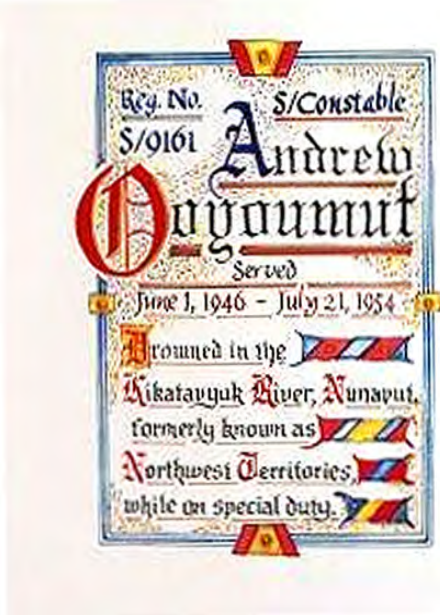 Reg. No. S/Constable
S/0161 Andrew
Ooyoumut
Served
June 1, 1946 - July 21, 1954
Drowned in the
Kikatavyuk River, Nunavut,
formerly known as
Northwest Territories,
while on special duty.